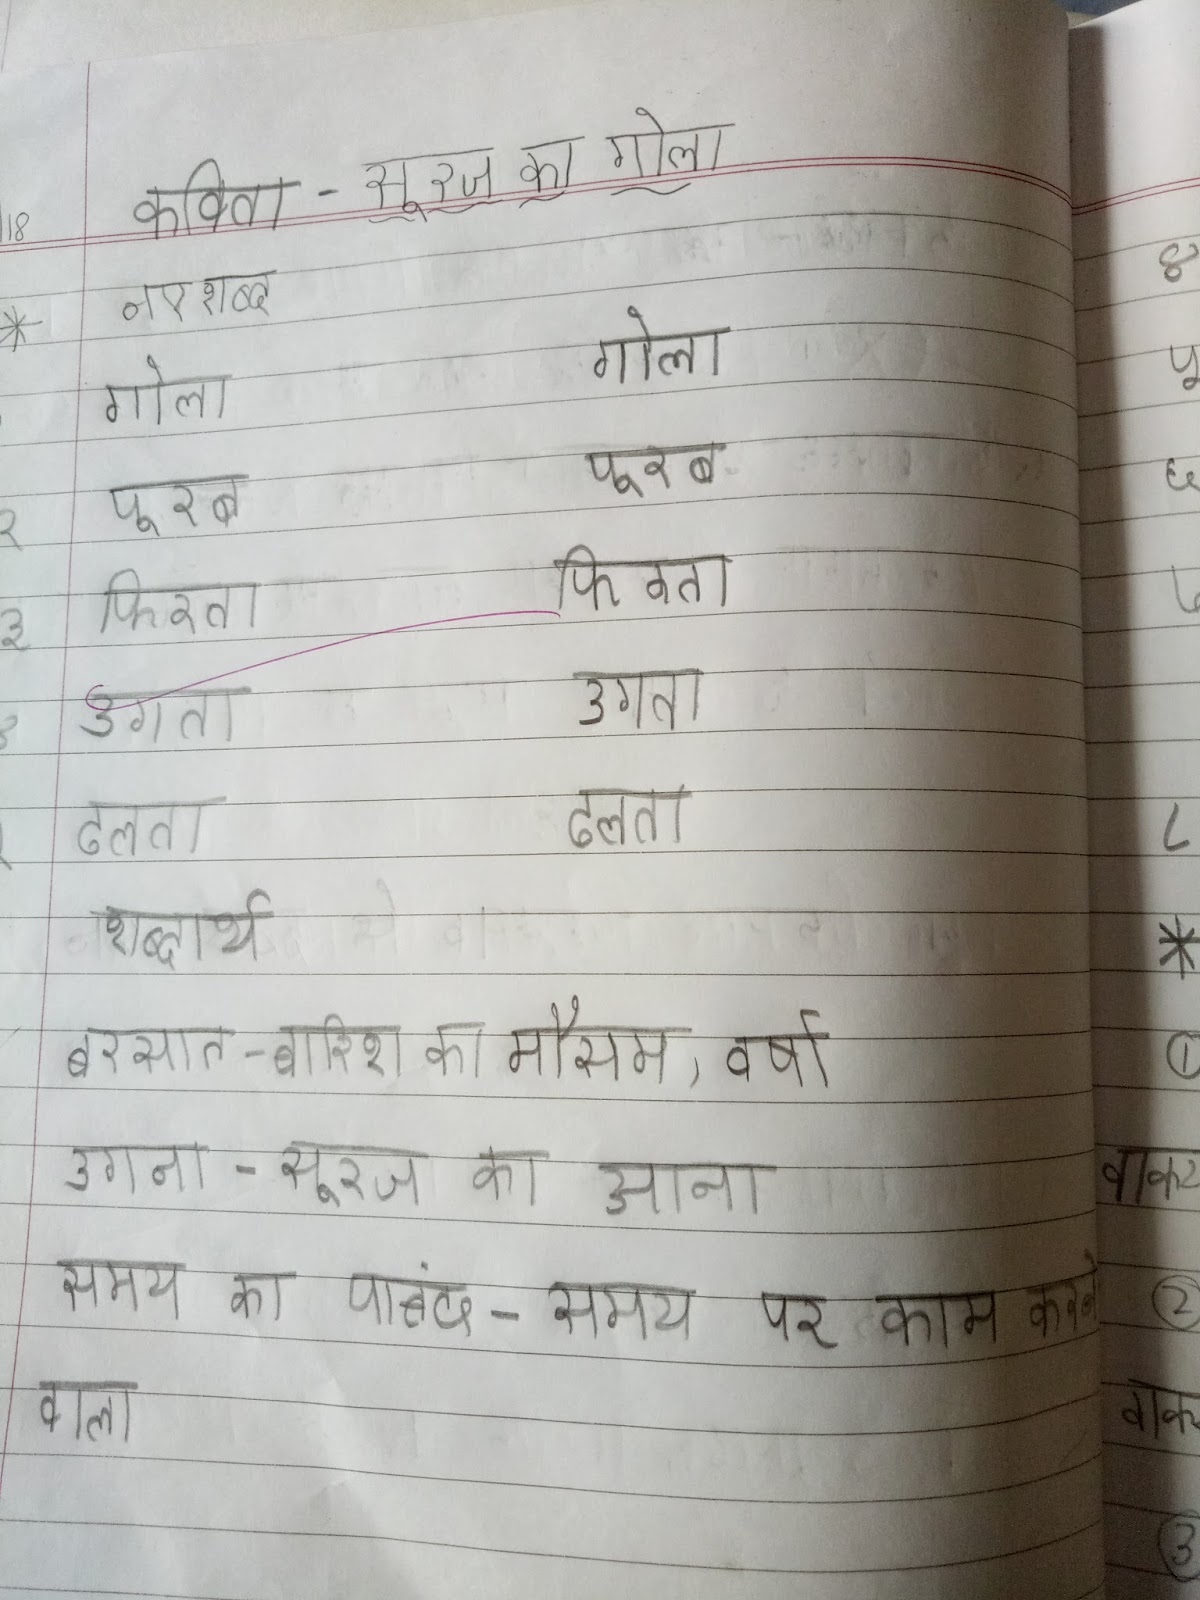 कविता - सूरज का गोला
18
* नए शब्द
गोला गोला
२ पूरब पूरब
३ फिरता फिरता
४ उगता उगता
ढलता ढलता
शब्दार्थ
बरसात - बारिश का मौसम, वर्षा
उगना - सूरज का आना
समय का पाबंद - समय पर काम करने
वाला
४
५
६
७
८
*
①
वाक्य
②
वाक्य
③